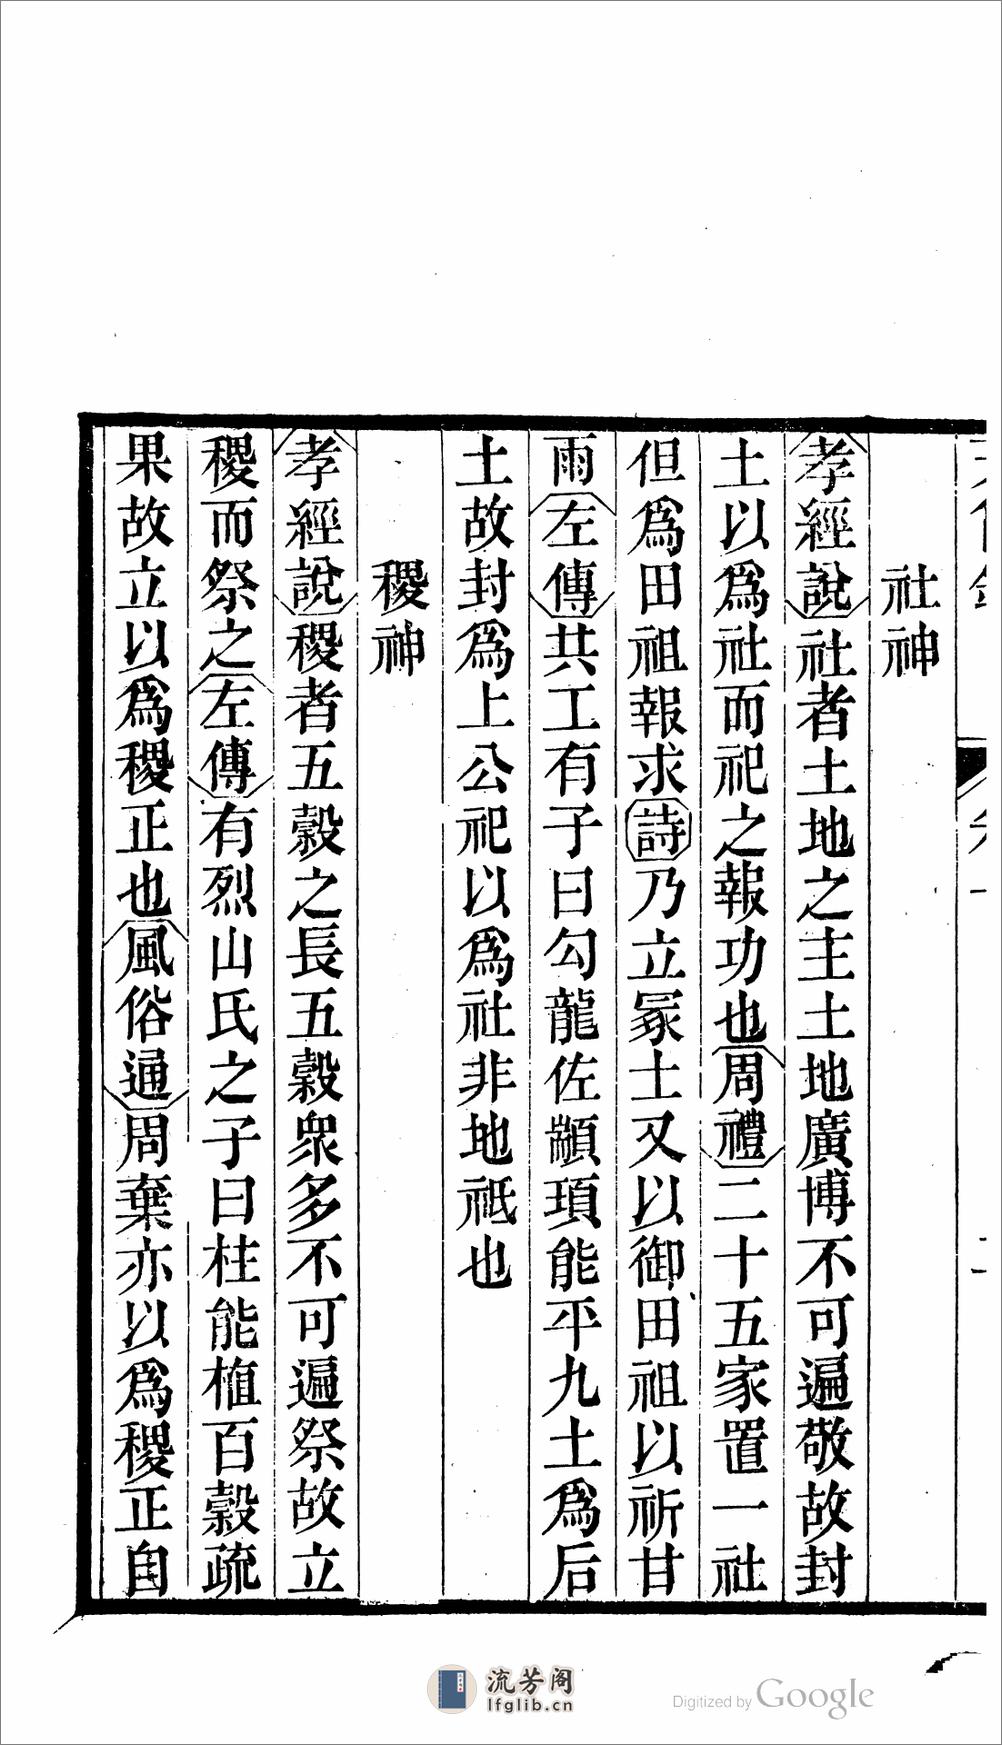 社神
孝經說社者土地之主土地廣博不可遍敬故封
土以爲社而祀之報功也周禮二十五家置一社
但爲田祖報求詩乃立冢土又以御田祖以祈甘
雨左傳共工有子曰勾龍佐顓頊能平九土爲后
土故封爲上公祀以爲社非地祇也
稷神
孝經說稷者五穀之長五穀衆多不可遍祭故立
稷而祭之左傳有烈山氏之子曰柱能植百穀疏
果故立以爲稷正也風俗通周棄亦以爲稷正自
流芳阁
lfglib.cn
Digitized by Google